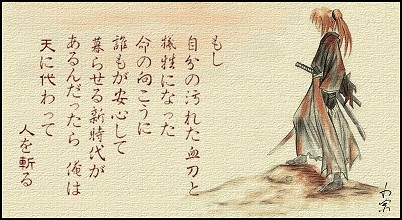 もし
自分の汚れた血刀と
犠牲になった
命の向こうに
誰もが安心して
暮らせる新時代が
あるんだったら 俺は
天に代わって
人を斬る